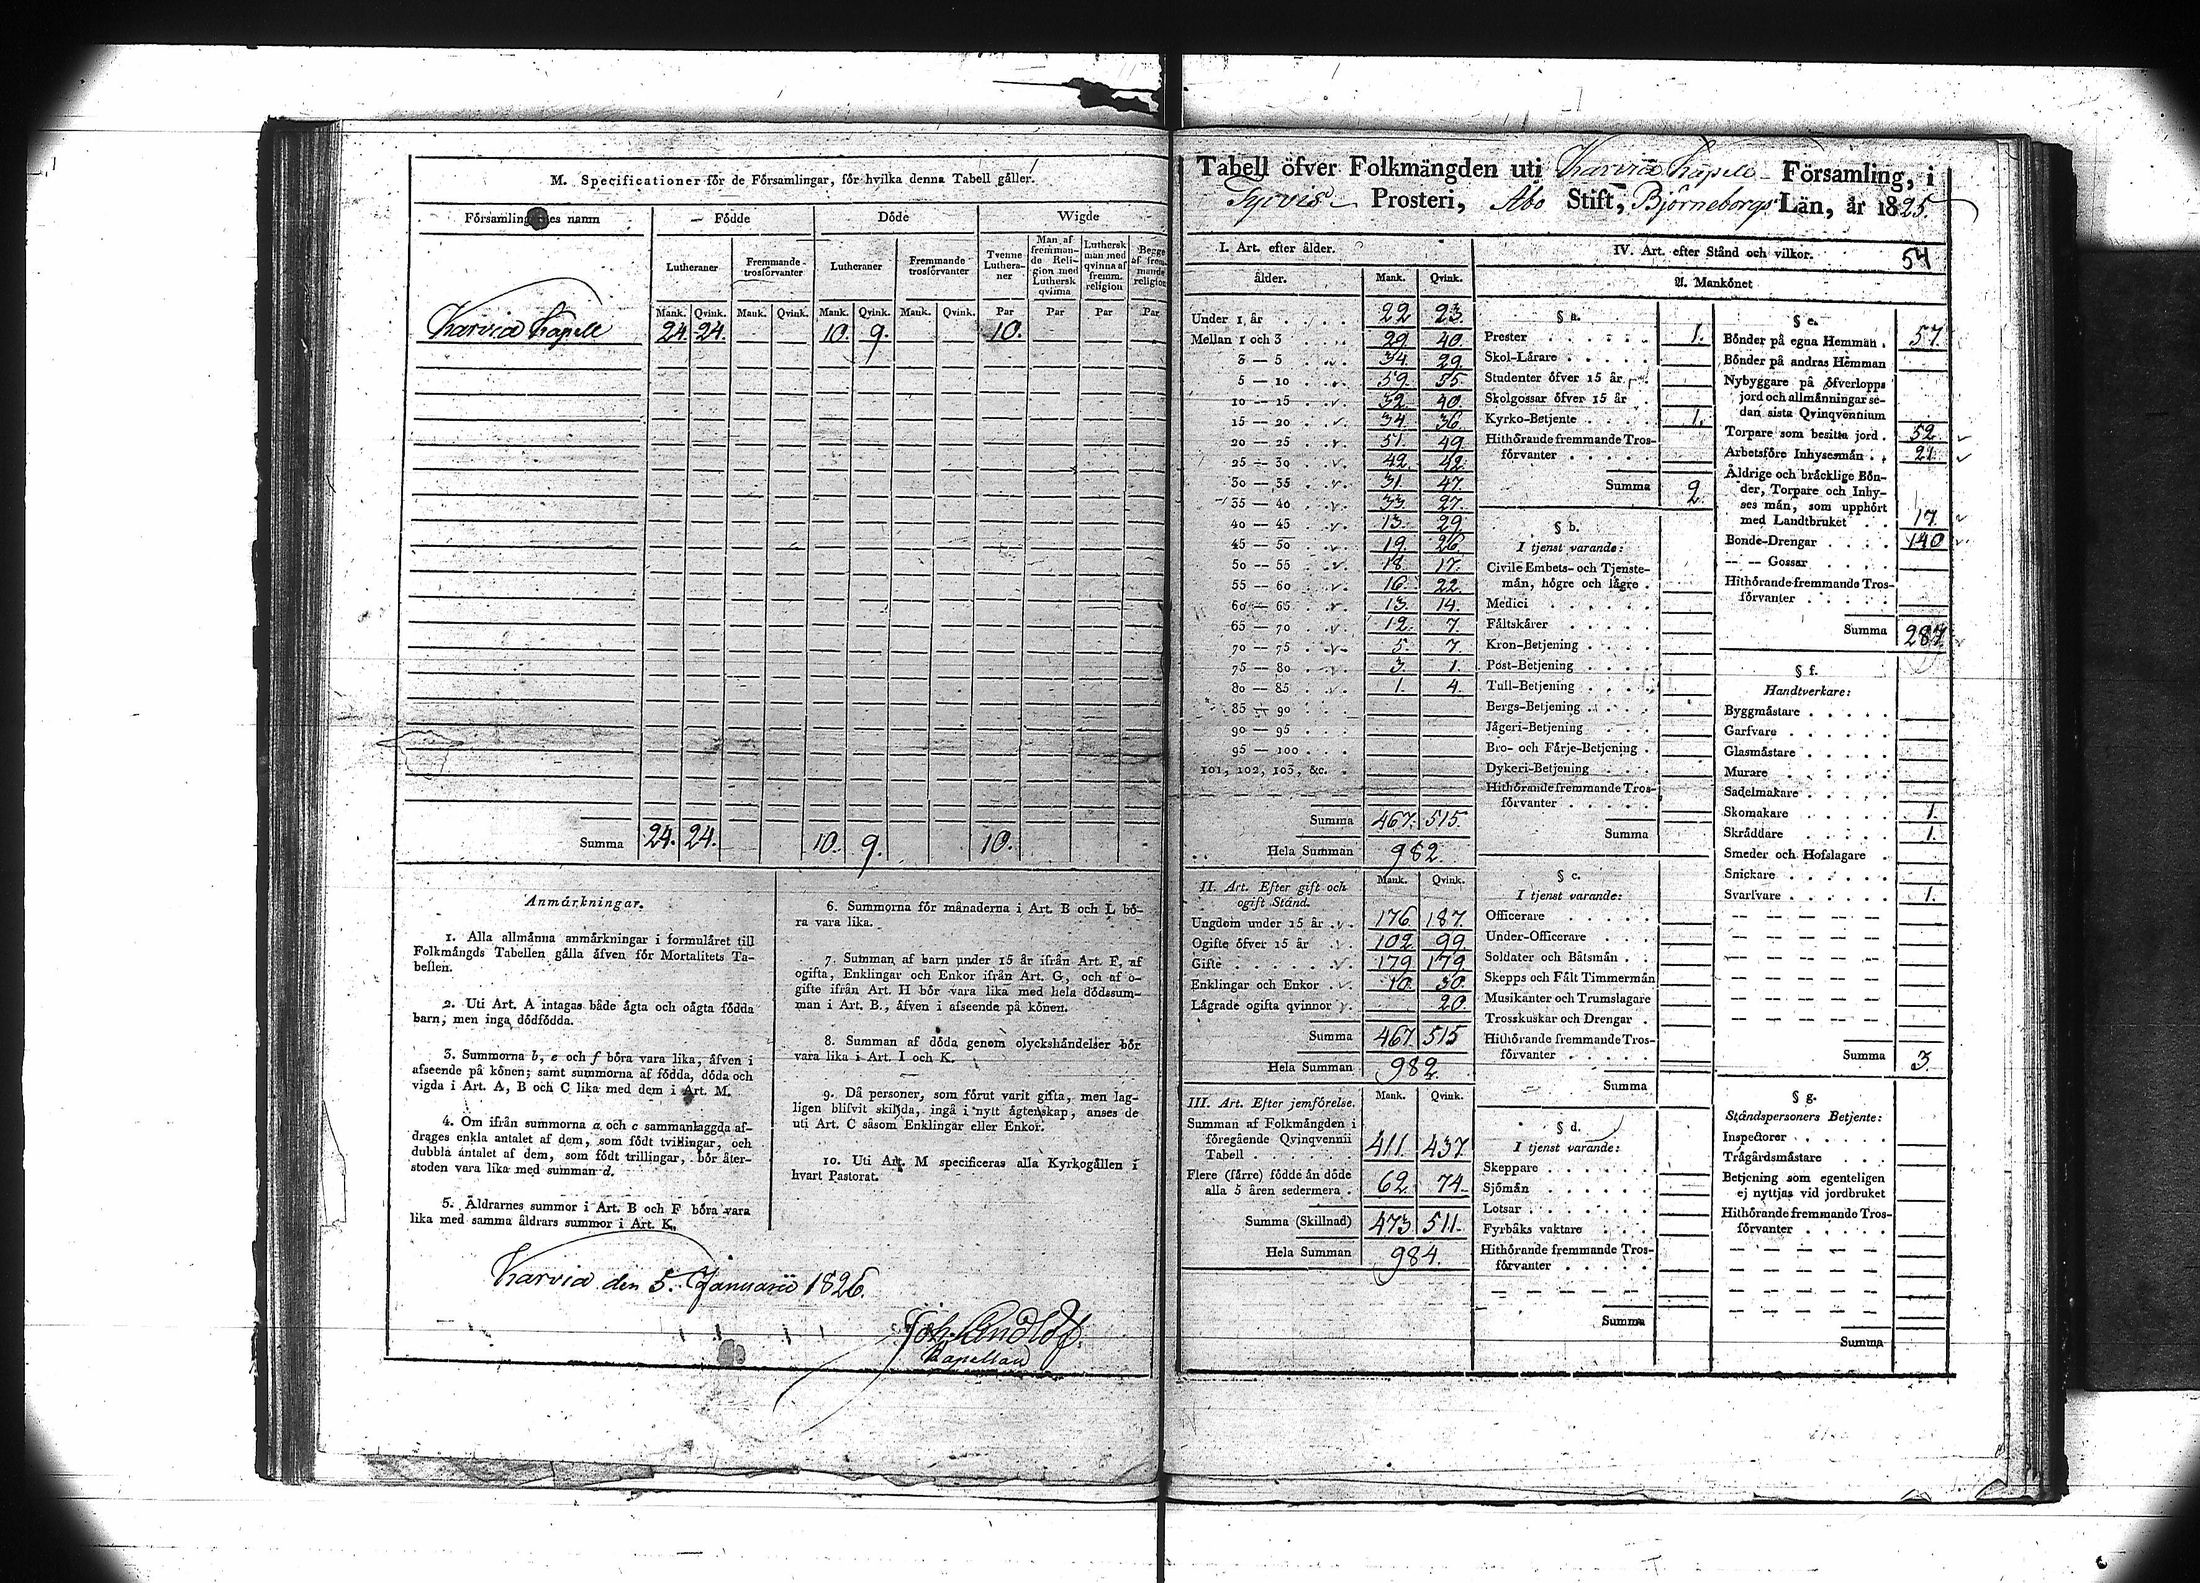 M. Specificationer för de Församlingar, för hvilka denna Tabell gäller.
Församlingarnes namn
Födde
Döde
Wigde
Lutheraner
Fremmande-trosförvanter
Lutheraner
Fremmande-trosförvanter
Tvenne Lutheraner
Man af fremmande Religion med Luthersk qvinna
Luthersk man med qvinna af fremm. religion
Begge af fremmande religion
Mank. Qvink. Mank. Qvink. Mank. Qvink. Mank. Qvink. Par Par Par Par
Karvia Kapell 24. 24. 10. 9. 10.
Summa 24. 24. 10. 9. 10.
Anmärkningar.
1. Alla allmänna anmärkningar i formuläret till
Folkmängds Tabellen gälla äfven för Mortalitets Ta-
bellen.
2. Uti Art. A intagas både ägta och oägta födda
barn, men inga dödfödda.
3. Summorna b, e och f böra vara lika, äfven i
afseende på könen; samt summorna af födda, döda och
vigda i Art. A, B och C lika med dem i Art. M.
4. Om ifrån summorna a och c sammanlaggda af-
drages enkla antalet af dem, som födt tvillingar, och
dubbla antalet af dem, som födt trillingar, bör åter-
stoden vara lika med summan d.
5. Åldrarnes summor i Art. B och F böra vara
lika med samma åldrars summor i Art. K.
6. Summorna för månaderna i Art. B och L bö-
ra vara lika.
7. Summan af barn under 15 år ifrån Art. F, af
ogifta, Enklingar och Enkor ifrån Art. G, och af o-
gifte ifrån Art. H bör vara lika med hela dödssum-
man i Art. B., äfven i afseende på könen.
8. Summan af döda genom olyckshändelser bör
vara lika i Art. I och K.
9. Då personer, som förut varit gifta, men lag-
ligen blifvit skiljda, ingå i nytt ägtenskap, anses de
uti Art. C såsom Enklingar eller Enkor.
10. Uti Art. M specificeras alla Kyrkogällen i
hvart Pastorat.
Karvia den 5. Januarii 1826.
Joh. Sandlöf.
Kapellan
Tabell öfver Folkmängden uti Karvia Kapell Församling, i
Tyrvis Prosteri, Åbo Stift, Björneborgs Län, år 1825.
54
I. Art. efter ålder.
ålder. Mank. Qvink.
Under 1 år 22 23.
Mellan 1 och 3 29 40.
3 — 5 34 29.
5 — 10 59. 55.
10 — 15 32. 40.
15 — 20 34. 36.
20 — 25 51. 49.
25 — 30 42. 42.
30 — 35 31. 47.
35 — 40 33. 27.
40 — 45 13. 29.
45 — 50 19. 26.
50 — 55 18. 17.
55 — 60 16. 22.
60 — 65 13. 14.
65 — 70 12. 7.
70 — 75 5. 7.
75 — 80 3. 1.
80 — 85 1. 4.
85 — 90
90 — 95
95 — 100
101, 102, 103, &c.
Summa 467. 515.
Hela Summan 982.
II. Art. Efter gift och ogift Stånd. Mank. Qvink.
Ungdom under 15 år 176 187.
Ogifte öfver 15 år 102. 99.
Gifte 179 179.
Enklingar och Enkor 10. 30.
Lägrade ogifta qvinnor 20.
Summa 467. 515
Hela Summan 982.
III. Art. Efter jemförelse. Mank. Qvink.
Summan af Folkmängden i
föregående Qvinqvennii
Tabell 411. 437.
Flere (färre) födde än döde
alla 5 åren sedermera 62. 74.
Summa (Skillnad) 473. 511.
Hela Summan 984.
IV. Art. efter Stånd och vilkor.
A. Mankönet
§ a.
Prester 1.
Skol-Lärare
Studenter öfver 15 år
Skolgossar öfver 15 år
Kyrko-Betjente 1.
Hithörande fremmande Tros-
förvanter
Summa 2.
§ b.
I tjenst varande:
Civile Embets- och Tjenste-
män, högre och lägre
Medici
Fältskärer
Kron-Betjening
Post-Betjening
Tull-Betjening
Bergs-Betjening
Jägeri-Betjening
Bro- och Färje-Betjening
Dykeri-Betjening
Hithörande fremmande Tros-
förvanter
Summa
§ c.
I tjenst varande:
Officerare
Under-Officerare
Soldater och Båtsmän
Skepps och Fält Timmermän
Musikanter och Trumslagare
Trosskuskar och Drengar
Hithörande fremmande Tros-
förvanter
Summa
§ d.
I tjenst varande:
Skeppare
Sjömän
Lotsar
Fyrbåks vaktare
Hithörande fremmande Tros-
förvanter
Summa
§ e.
Bönder på egna Hemman 57.
Bönder på andras Hemman
Nybyggare på öfverlopps
jord och allmänningar se-
dan sista Qvinqvennium
Torpare som besitta jord 52.
Arbetsföre Inhysesmän 21.
Åldrige och bräcklige Bön-
der, Torpare och Inhy-
ses män, som upphört
med Landtbruket 17.
Bonde-Drengar 140
— — Gossar
Hithörande fremmande Tros-
förvanter
Summa 287.
§ f.
Handtverkare:
Byggmästare
Garfvare
Glasmästare
Murare
Sadelmakare
Skomakare 1.
Skräddare 1.
Smeder och Hofslagare
Snickare
Svarfvare 1.
Summa 3.
§ g.
Ståndspersoners Betjente:
Inspectorer
Trägårdsmästare
Betjening som egenteligen
ej nyttjas vid jordbruket
Hithörande fremmande Tros-
förvanter
Summa